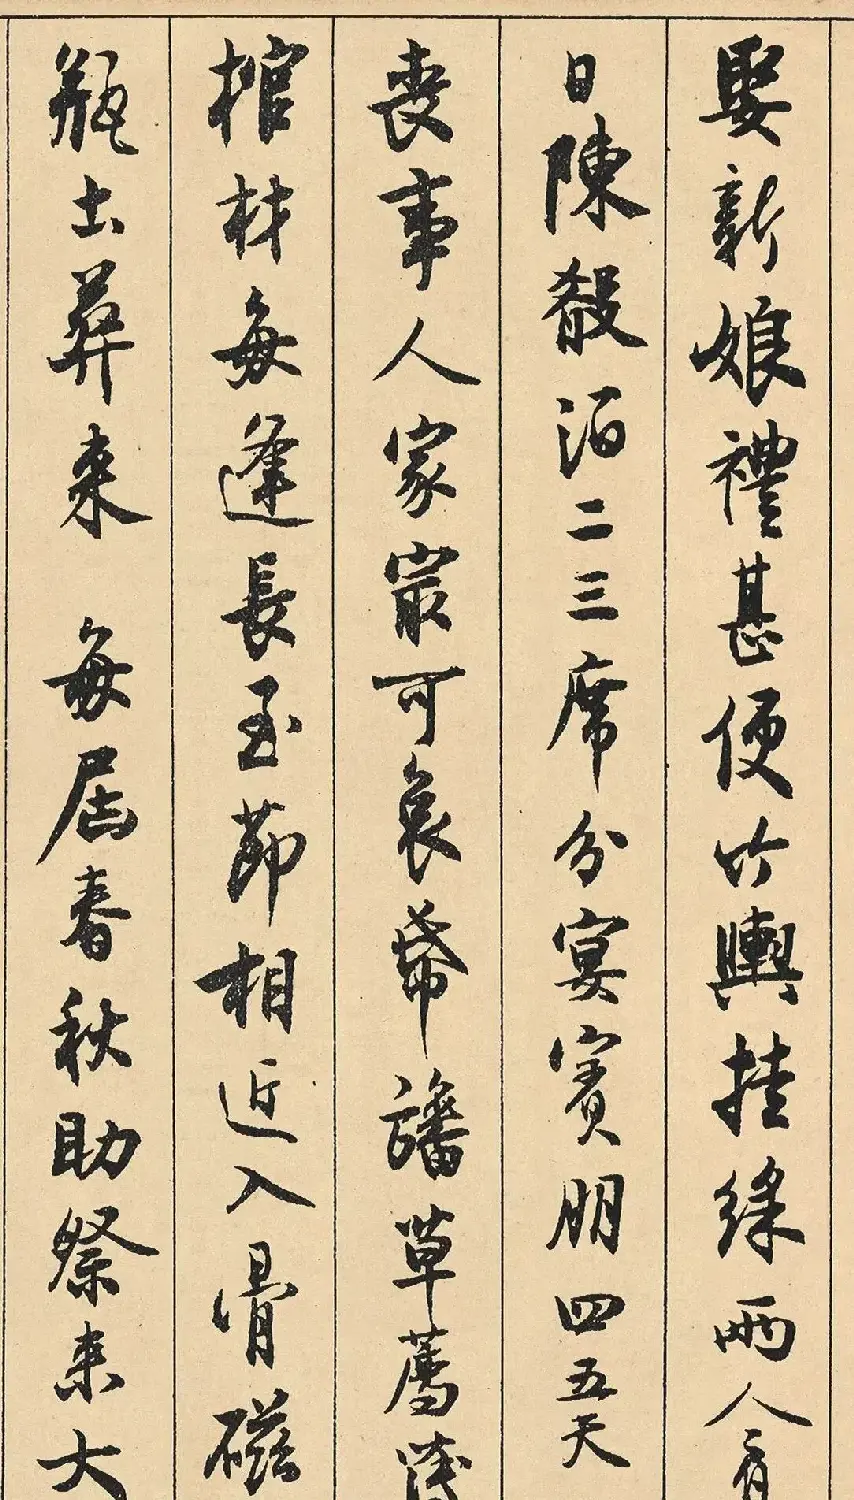 娶新娘禮甚便竹輿挂綵兩人肩
日陳殽酒二三席分宴賓朋四五天
喪事人家㝡可哀幣旛草薦
棺材每逢長至節相近入骨磁
瓶土葬来 每屆春秋助祭来大